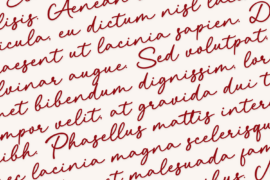 lisis. Aenean
icula, eu dictum nisl lac
aesent ut lacinia sapien. D
lvinar augue. Sed volutpat
met bibendum dignissim, lor
mpor velit, at gravida dui t
ibh. Phasellus mattis inter
ec lacinia magna scelerisqu
et malesuada fam